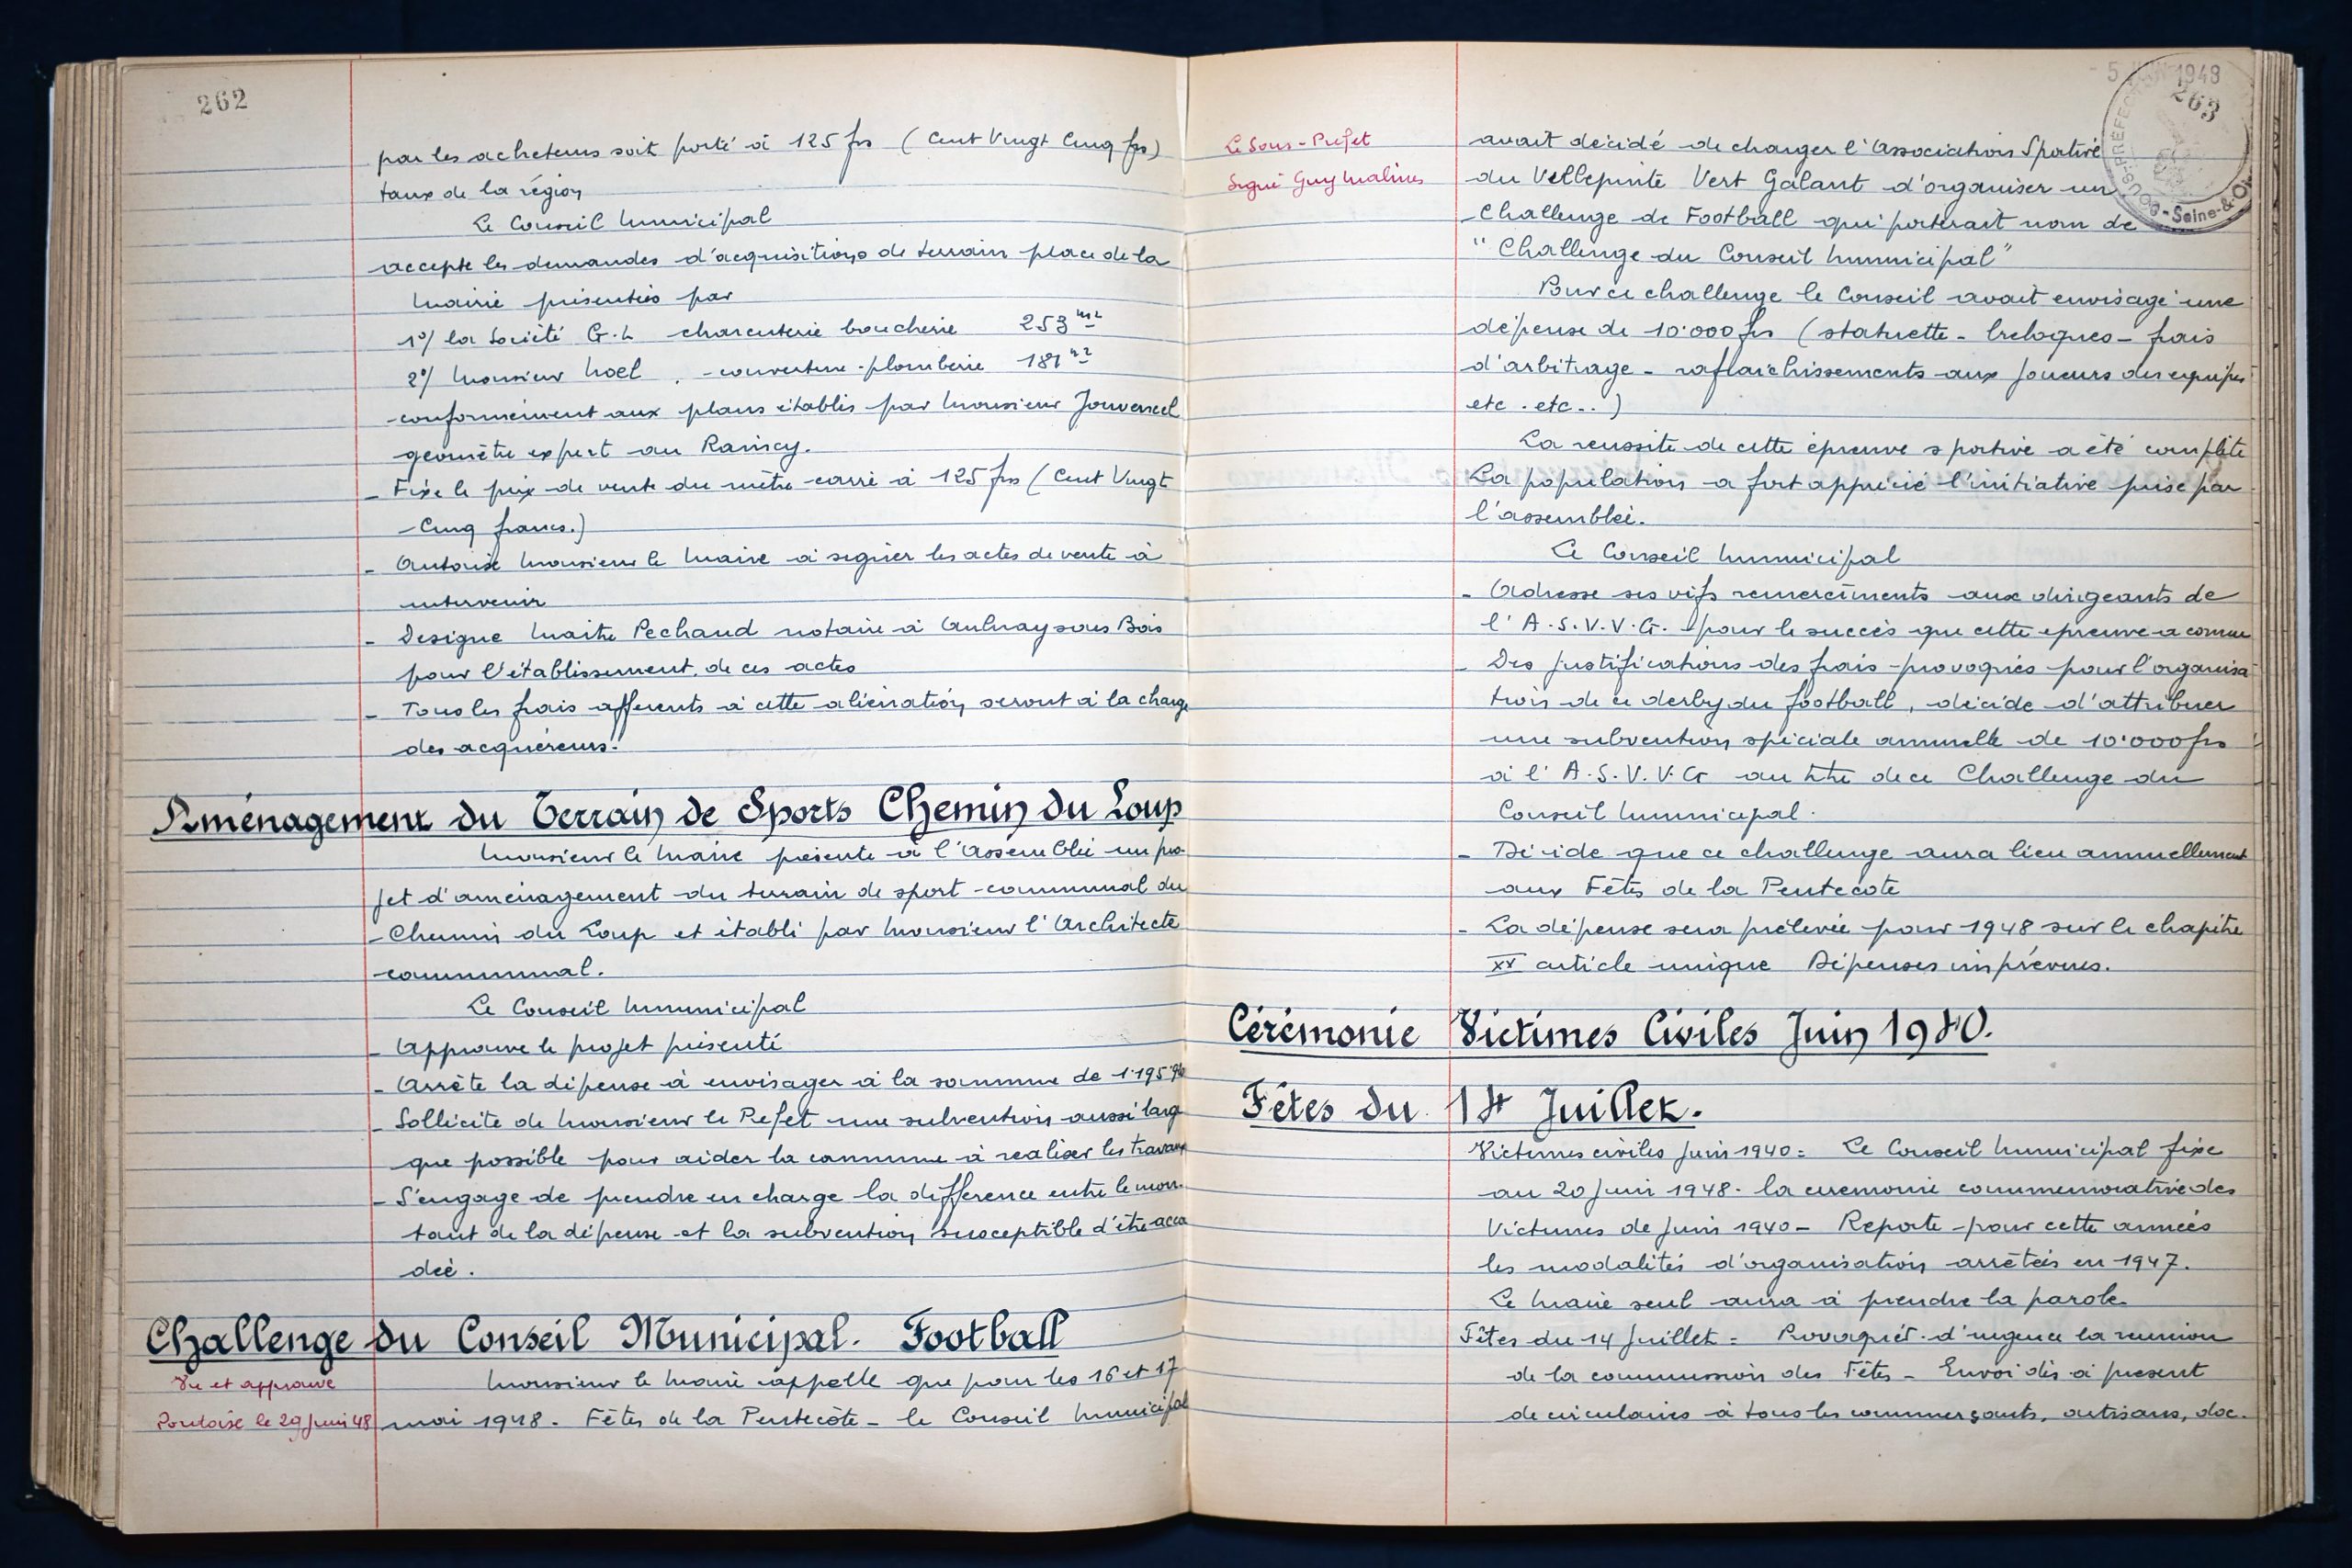 262
par les acheteurs soit porté à 125 frs (Cent Vingt Cinq frs)
taux de la région
Le Conseil Municipal
accepte les demandes d'acquisitions de terrain place de la
Mairie présentées par
1°/ la Société G.L charcuterie boucherie 253 m2
2°/ Monsieur Noel, couverture-plomberie 181 m2
conformément aux plans établis par Monsieur Jouvencel
géomètre expert au Raincy.
- Fixe le prix de vente du mètre carré à 125 frs (Cent Vingt
Cinq francs.)
- Autorise Monsieur le Maire à signer les actes de vente à
intervenir
- Designe Maitre Pechaud notaire à Aulnay sous Bois
pour l'établissement de ces actes
- Tous les frais afferents à cette aliénation seront à la charge
des acquéreurs.
Aménagement du Terrain de Sports Chemin du Loup
Monsieur le Maire présente à l'Assemblée un pro-
jet d'aménagement du terrain de sport communal du
Chemin du Loup et établi par Monsieur l'Architecte
communal.
Le Conseil Municipal
- Approuve le projet présenté
- Arrête la dépense à envisager à la somme de
- Sollicite de Monsieur le Prefet une subvention aussi large
que possible pour aider la commune à realiser les travaux
- S'engage de prendre en charge la différence entre le mon-
tant de la dépense et la subvention susceptible d'être acco
dée.
Challenge du Conseil Municipal. Football
Vu et approuvé
Pontoise le 29 Juin 48
Monsieur le Maire rappelle que pour les 16 et 17
mai 1948 - Fêtes de la Pentecôte - le Conseil Municipal
- 5 JUIN 1948
263
SOUS-PRÉFEC
Seine-&-O
Le Sous-Prefet
Signé Guy Malines
avait décidé de charger l'Association Sportive
du Villepinte Vert Galant d'organiser un
Challenge de Football qui porterait nom de
"Challenge du Conseil Municipal"
Pour ce challenge le Conseil avait envisagé une
dépense de 10.000 frs (statuette - breloques - frais
d'arbitrage - raflaichissements aux Joueurs des equipes
etc. etc..)
La reussite de cette épreuve sportive a été complète
La population a fort apprécié l'initiative prise par
l'assemblée.
Le Conseil Municipal
- Adresse ses vifs remerciments aux dirigeants de
l'A.S.V.V.G. pour le succès que cette epreuve a connu
- Des Justifications des frais provoqués pour l'organisa
tion de ce derby du football, décide d'attribuer
une subvention spéciale annuelle de 10.000 frs
à l'A.S.V.V.G au titre de ce Challenge du
Conseil Municipal.
- Décide que ce challenge aura lieu annuellement
aux Fêtes de la Pentecote
- La dépense sera prélevée pour 1948 sur le chapitre
XV article unique Dépenses imprévues.
Cérémonie Victimes Civiles Juin 1940.
Fêtes du 14 Juillet.
Victimes civiles Juin 1940 = Le Conseil Municipal fixe
au 20 Juin 1948 - la ceremonie commemorative des
Victimes de Juin 1940 - Reporte pour cette années
les modalités d'organisation arrêtées en 1947.
Le Maire seul aura à prendre la parole
Fêtes du 14 Juillet = d'urgence la reunion
de la commission des Fêtes - Envoi dès à present
de circulaires à tous les commerçants, artisans, doc-